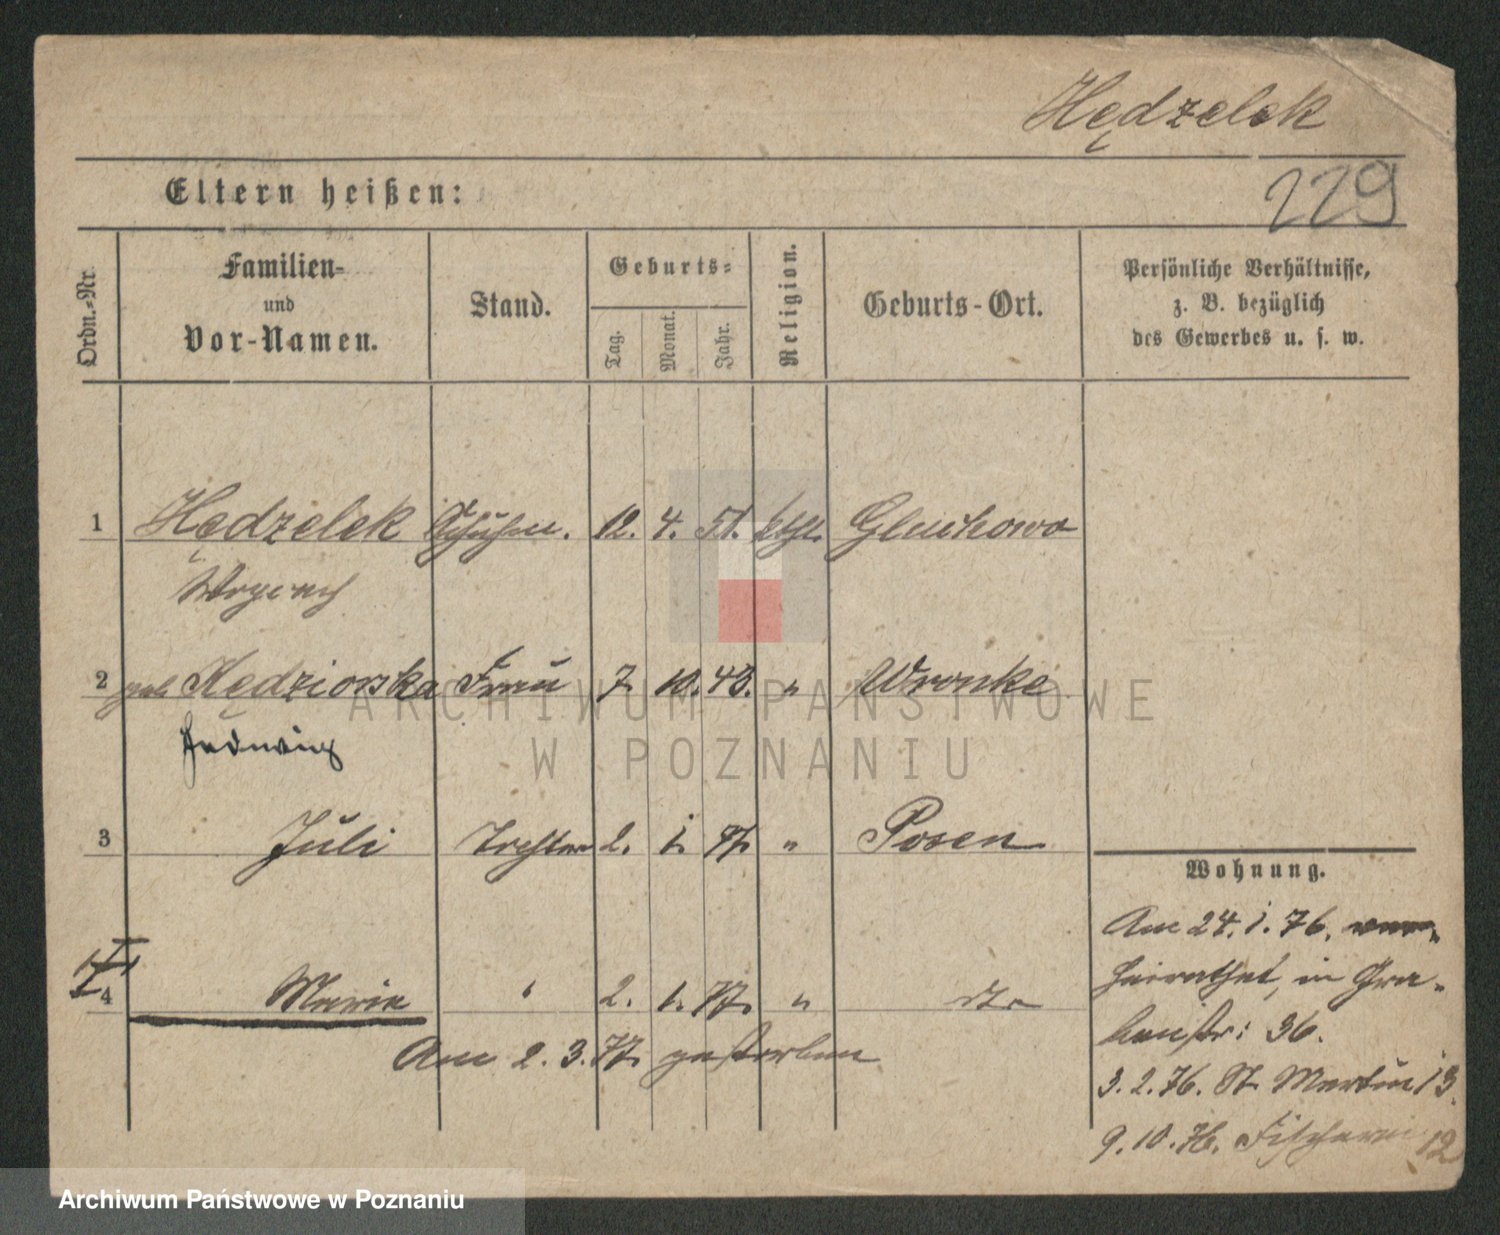 Hędzelek
Eltern heißen:
229
Ordn.-Nr.
Familien-
und
Vor-Namen.
Stand.
Geburts-
Tag.
Monat.
Jahr.
Religion.
Geburts-Ort.
Persönliche Verhältnisse,
z. B. bezüglich
des Gewerbes u. s. w.
1 Hędzelek Schuhm. 12. 4. 51. kth. Gluchowo
2 geb Kędziorska Frau 7. 10. 48. " Wronke
Hedwig
3 Juli Tochter 2. 1. 77. " Posen
4 Marie " 2. 1. 77. " dto
Am 2. 3. 77. gestorben
Wohnung.
Am 24. 1. 76. ver-
heirathet, in Gra-
benstr: 36.
3. 2. 76. St. Martin 13.
9. 10. 76. Fischerei 12
ARCHIWUM PAŃSTWOWE
W POZNANIU
Archiwum Państwowe w Poznaniu